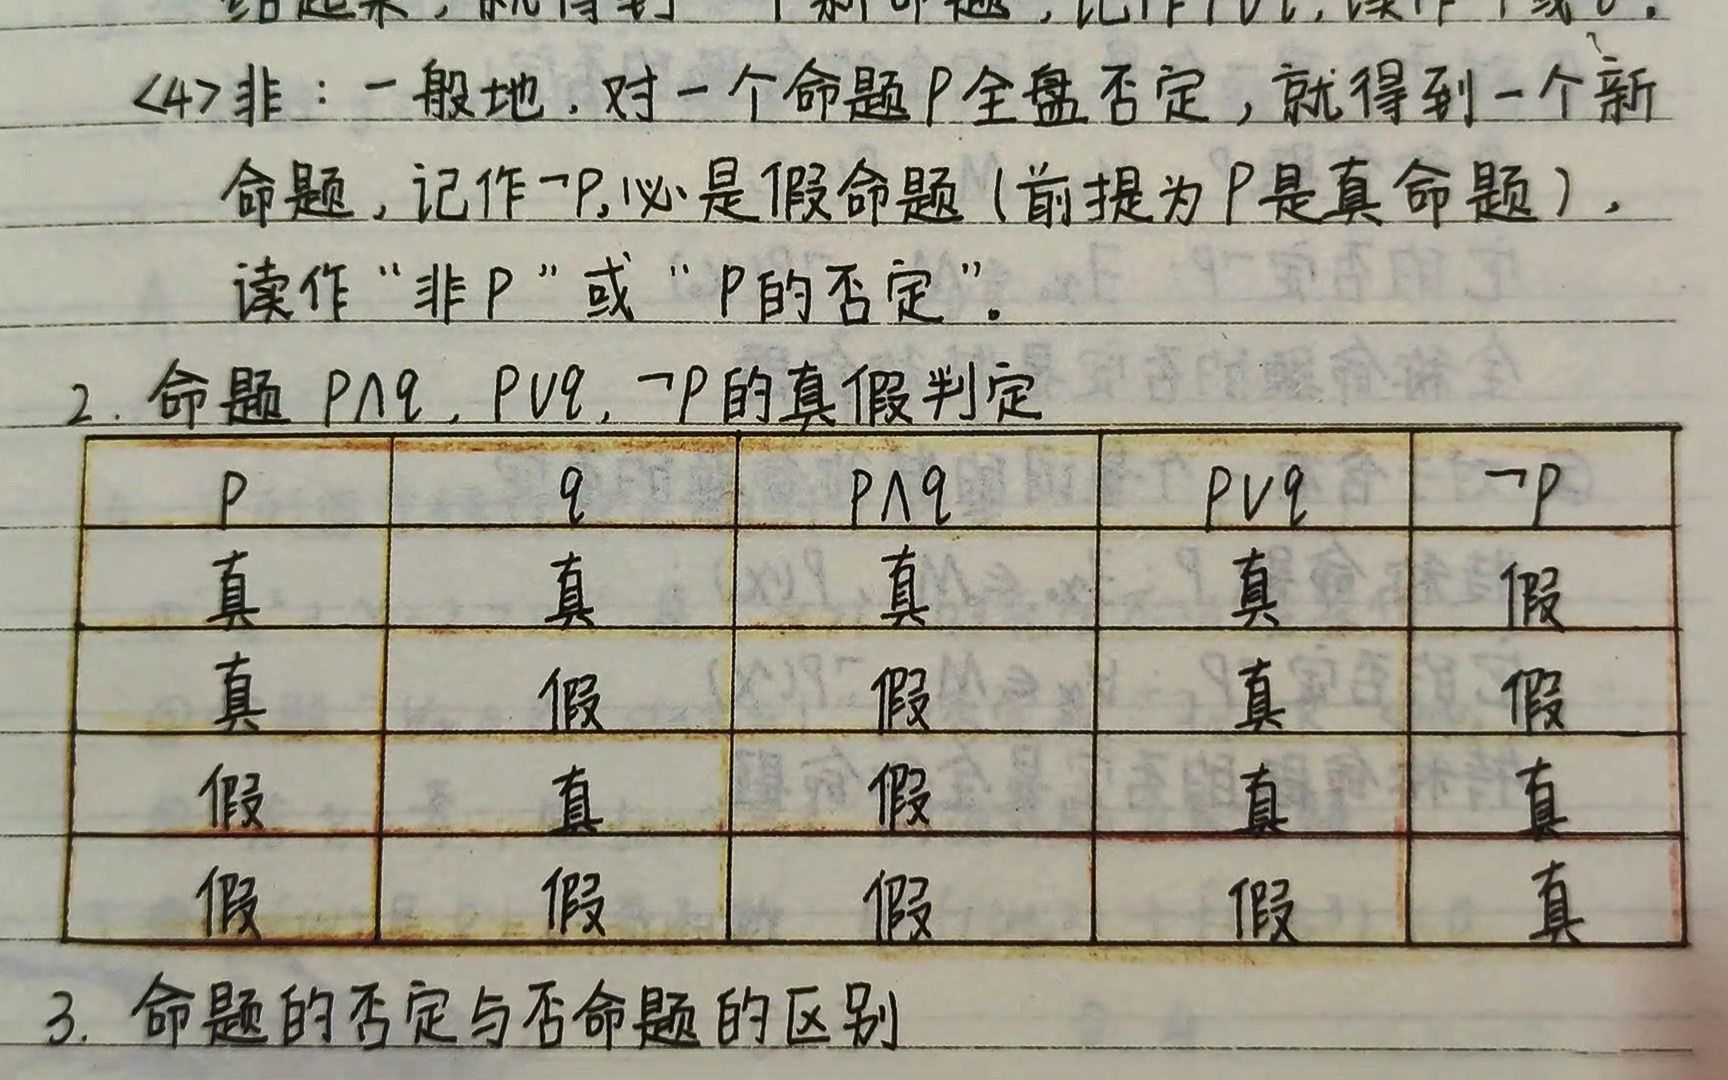 一个新命题,记作P∨q,读作P或q.
<4>非:一般地.对一个命题P全盘否定,就得到一个新
命题,记作¬P,必是假命题(前提为P是真命题).
读作“非P”或“P的否定”.
2.命题 P∧q, P∨q, ¬P的真假判定
P q P∧q P∨q ¬P
真 真 真 真 假
真 假 假 真 假
假 真 假 真 真
假 假 假 假 真
3.命题的否定与否命题的区别